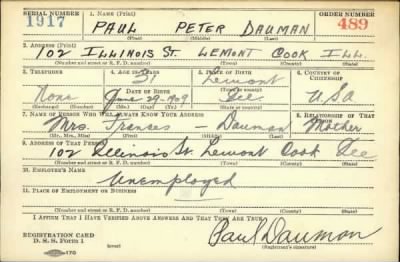 SERIAL NUMBER 1. NAME (Print) ORDER NUMBER
1917 PAUL PETER DAUMAN 489
(First) (Middle) (Last)
2. ADDRESS (Print)
102 ILLINOIS ST. LEMONT COOK ILL.
(Number and street or R. F. D. number) (Town) (County) (State)
3. TELEPHONE 4. AGE IN YEARS 5. PLACE OF BIRTH 6. COUNTRY OF CITIZENSHIP
31 Lemont
None DATE OF BIRTH
June 29-1909 Ill USA
(Exchange) (Number) (Mo.) (Day) (Yr.) (State or country)
7. NAME OF PERSON WHO WILL ALWAYS KNOW YOUR ADDRESS 8. RELATIONSHIP OF THAT PERSON
Mrs. Frances - Dauman Mother
(Mr., Mrs., Miss) (First) (Middle) (Last)
9. ADDRESS OF THAT PERSON
102 Illinois St. Lemont Cook Ill
(Number and street or R. F. D. number) (Town) (County) (State)
10. EMPLOYER'S NAME
Unemployed
11. PLACE OF EMPLOYMENT OR BUSINESS
(Number and street or R. F. D. number) (Town) (County) (State)
I AFFIRM THAT I HAVE VERIFIED ABOVE ANSWERS AND THAT THEY ARE TRUE.
REGISTRATION CARD Paul Dauman
D. S. S. Form 1 (Registrant's signature)